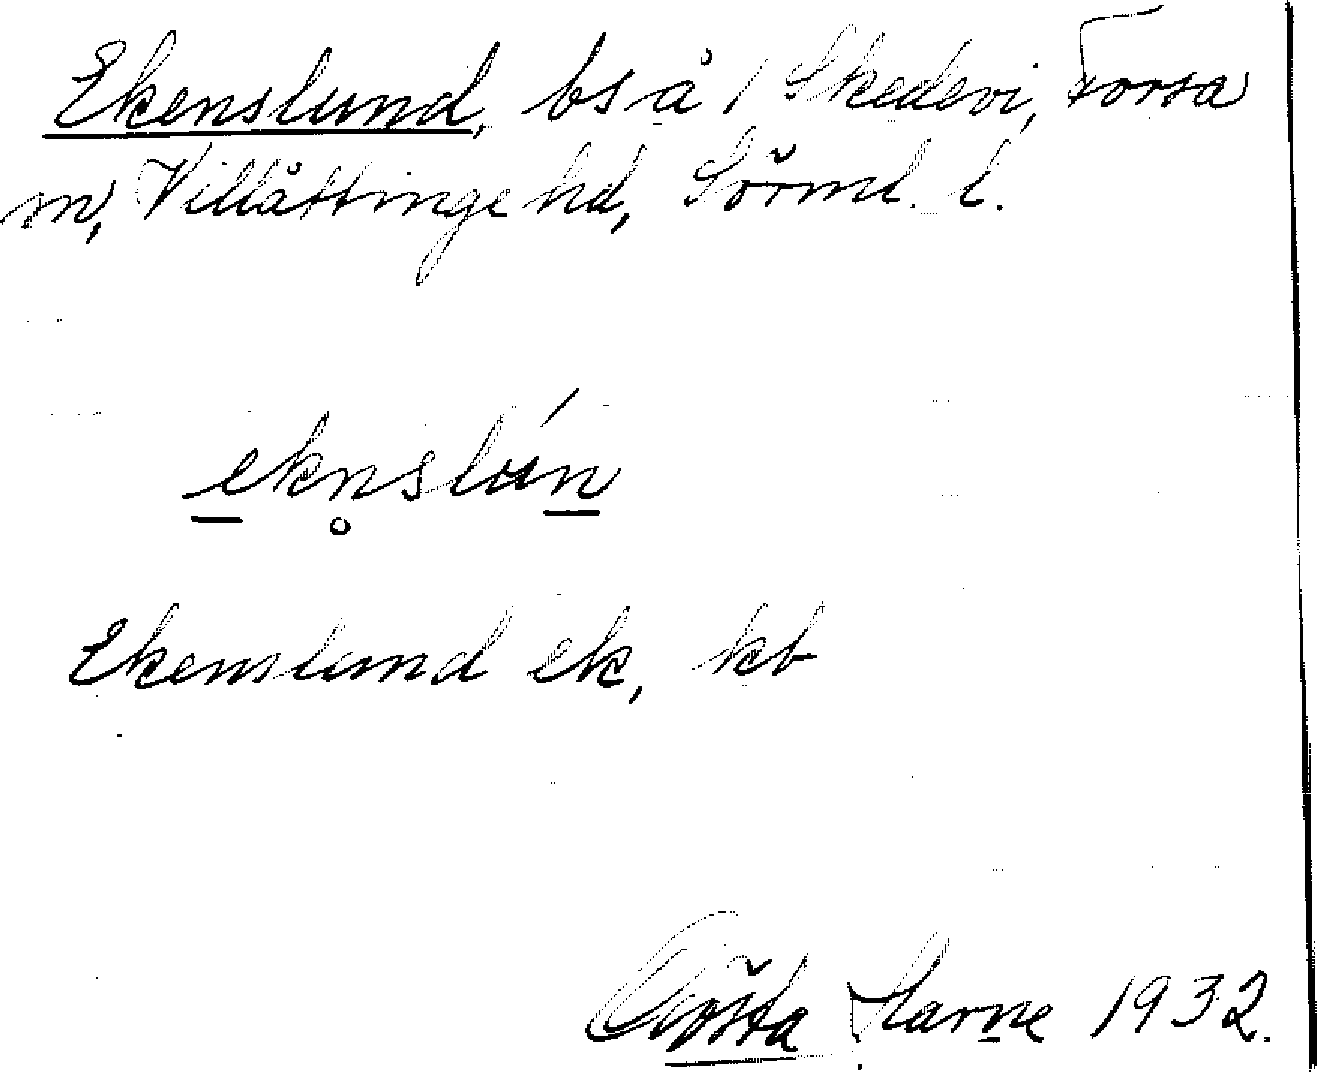 Ekenslund, bs å / Skedevi, Forsa
sn, Villåttinge hd, Sörml. l.
ekn̥slún
Ekenslund ek, kb
Gösta 1932.